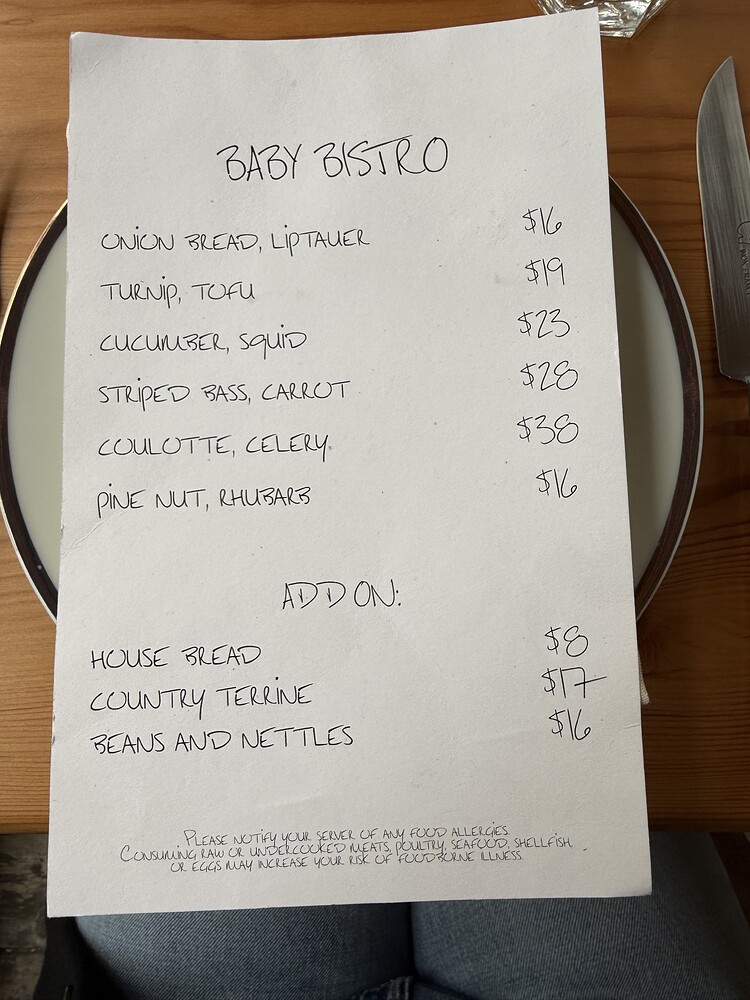 BABY BISTRO
ONION BREAD, LIPTAUER $16
TURNIP, TOFU $19
CUCUMBER, SQUID $23
STRIPED BASS, CARROT $28
COULOTTE, CELERY $38
PINE NUT, RHUBARB $16
ADD ON:
HOUSE BREAD $8
COUNTRY TERRINE $17
BEANS AND NETTLES $16
PLEASE NOTIFY YOUR SERVER OF ANY FOOD ALLERGIES.
CONSUMING RAW OR UNDERCOOKED MEATS, POULTRY, SEAFOOD, SHELLFISH,
OR EGGS MAY INCREASE YOUR RISK OF FOODBORNE ILLNESS.